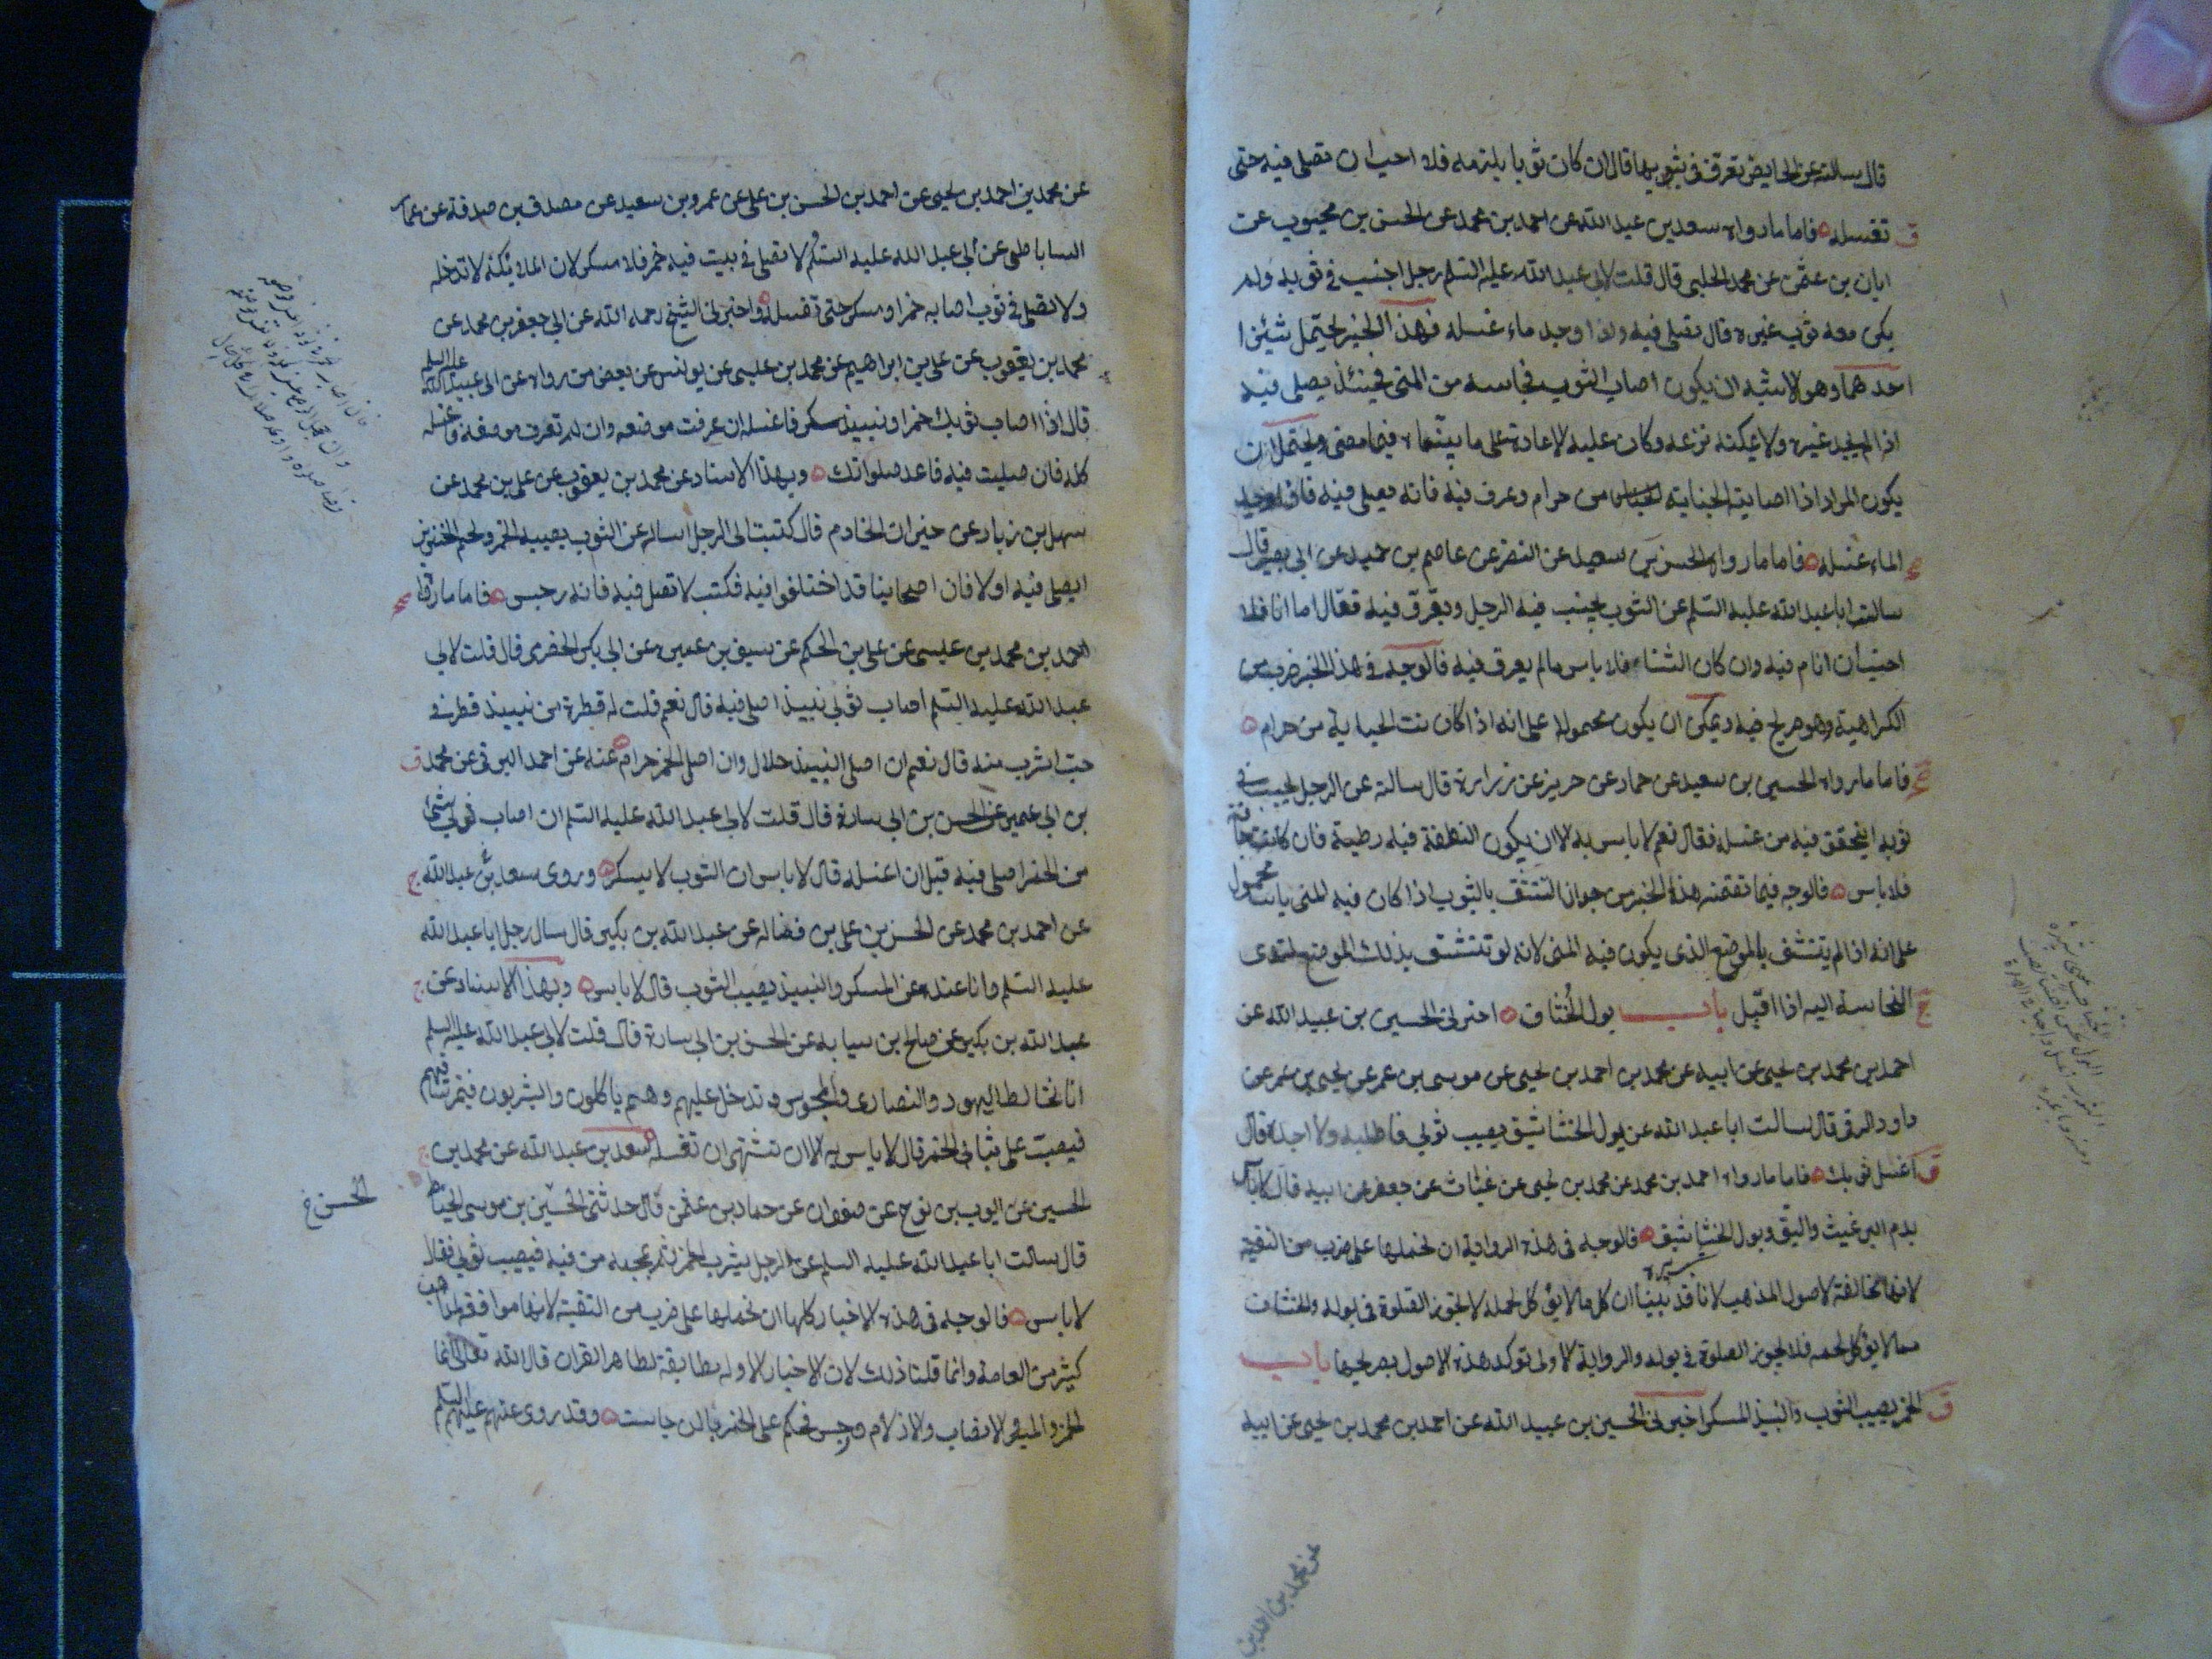 قال سالته عن الحايض تعرق في ثوبها قال ان كان ثوبا يلزمه فلا احب ان تصلى فيه حتى
تغسله فاما ما رواه سعد بن عبد الله عن احمد بن محمد عن الحسن بن محبوب عن
ابان بن عثمن عن محمد الحلبى قال قلت لابى عبد الله عليه السلم رجل اجنب في ثوبه ولم
يكن معه ثوب غيره قال يصلى فيه واذا وجد ماء غسله فهذا الخبر يحتمل شيئين
احدهما وهو الاشبه ان يكون اصاب الثوب نجاسه من المنى فحينئذ يصلى فيه
اذا لم يجد غيره ولا يمكنه نزعه وكان عليه الاعادة على ما بيناه فيما مضى ويحتمل ان
يكون المراد اذا اصابته الجنابة من حرام وعرق فيه فانه يصلى فيه فاذا وجد
الماء غسله فاما ما رواه الحسن بن سعيد عن النضر عن عاصم بن حميد عن ابى بصير قال
سالت ابا عبد الله عليه السلم عن الثوب يجنب فيه الرجل ويعرق فيه فقال اما انا فلا
احب ان انام فيه وان كان الشتاء فلا باس ما لم يعرق فيه فالوجه في هذا الخبر ضرب من
الكراهية وهو صريح فيه ويمكن ان يكون محمولا على انه اذا كان من حرام
فاما ما رواه الحسين بن سعيد عن حماد عن حريز عن زرارة قال سالته عن الرجل يجنب في
ثوبه ايتجفف فيه من غسله فقال نعم لا باس به الا ان يكون النطفة فيه رطبة فان كانت جافة
فلا باس فالوجه فيما تضمنه هذا الخبر من جواز التنشف بالثوب اذا كان فيه المنى محمول
على انه اذا لم يتنشف بالموضع الذى يكون فيه المنى لانه لو تنشف بذلك الموضع لتعدى
النجاسة اليه اذا ابتل باب بول الخشاف اخبرنى الحسين بن عبيد الله عن
احمد بن محمد بن يحيى عن ابيه عن محمد بن احمد بن يحيى عن موسى بن عمر عن يحيى بن عمر عن
داود الرقى قال سالت ابا عبد الله عن بول الخشاشيق يصيب ثوبى فاطلبه ولا اجده قال
اغسل ثوبك فاما ما رواه احمد بن محمد عن محمد بن يحيى عن غياث عن جعفر عن ابيه قال لا باس
بدم البراغيث والبق وبول الخشاشيق فالوجه فى هذه الرواية ان نحملها على ضرب من التقية
لانها مخالفة لاصول المذهب لانا قد بينا ان كل ما لا يؤكل لحمه لا يجوز الصلوة فى بوله والخشاف
مما لا يؤكل لحمه فلا يجوز الصلوة فى بوله والرواية الاولى توكد هذه الاصول بصريحها باب
الخمر يصيب الثوب والنبيذ المسكر اخبرنى الحسين بن عبيد الله عن احمد بن محمد بن يحيى عن ابيه
عن محمد بن احمد بن
عن محمد بن احمد بن يحيى عن احمد بن الحسن بن على عن عمرو بن سعيد عن مصدق بن صدقة عن عمار
الساباطى عن ابى عبد الله عليه السلم لا تصلى في بيت فيه خمر ولا مسكر لان الملائكة لا تدخله
ولا تصلى في ثوب اصابه خمر او مسكر حتى تغسله واخبرنى الشيخ رحمه الله عن ابى جعفر بن محمد عن
محمد بن يعقوب عن على بن ابراهيم عن محمد بن عيسى عن يونس عن بعض من رواه عن ابى عبد الله عليه السلم
قال اذا اصاب ثوبك خمر او نبيذ مسكر فاغسله ان عرفت موضعه وان لم تعرف موضعه فاغسله
كله فان صليت فيه فاعد صلواتك وبهذا الاسناد عن محمد بن يعقوب عن على بن محمد عن
سهل بن زياد عن خيران الخادم قال كتبت الى الرجل اساله عن الثوب يصيبه الخمر ولحم الخنزير
ايصلى فيه او لا فان اصحابنا قد اختلفوا فيه فكتب لا تصل فيه فانه رجس فاما ما رواه
احمد بن محمد بن عيسى عن على بن الحكم عن سيف بن عميرة عن ابى بكر الحضرمى قال قلت لابى
عبد الله عليه السلم اصاب ثوبى نبيذ اصلى فيه قال نعم قلت له قطرة من نبيذ قطر في
حب اشرب منه قال نعم ان اصل النبيذ حلال وان اصل الخمر حرام عنه عن احمد البرقى عن محمد
بن ابى عمير عن الحسن بن ابى سارة قال قلت لابى عبد الله عليه السلم ان اصاب ثوبى شئ
من الخمر اصلى فيه قبل ان اغسله قال لا باس ان الثوب لا يسكر وروى سعد بن عبد الله
عن احمد بن محمد عن الحسن بن على بن فضاله عن عبد الله بن بكير قال سال رجل ابا عبد الله
عليه السلم وانا عنده عن المسكر والنبيذ يصيب الثوب قال لا باس وبهذا الاسناد عن
عبد الله بن بكير عن صالح بن سيابه عن الحسن بن ابى سارة قال قلت لابى عبد الله عليه السلم
انا نخالط اليهود والنصارى والمجوس وندخل عليهم وهم ياكلون ويشربون فيمر ساقيهم
فيصب على ثيابى الخمر قال لا باس به الا ان تشتهى ان تغسله سعد بن عبد الله عن محمد بن
الحسين عن ايوب بن نوح عن صفوان عن حماد بن عثمن قال حدثنى الحسين بن موسى الحناط
الحسن خ
قال سالت ابا عبد الله عليه السلم عن الرجل يشرب الخمر ثم يمجه من فيه فيصيب ثوبى فقال
لا باس فالوجه فى هذه الاخبار كلها ان نحملها على ضرب من التقية لانها موافقة لمذاهب
كثير من العامة وانما قلنا ذلك لان الاخبار الاوله مطابقة لظاهر القران قال الله تعالى انما
الخمر والميسر والانصاب والازلام رجس فحكم على الخمر بالرجاسة وقد روى عنهم عليهم السلم